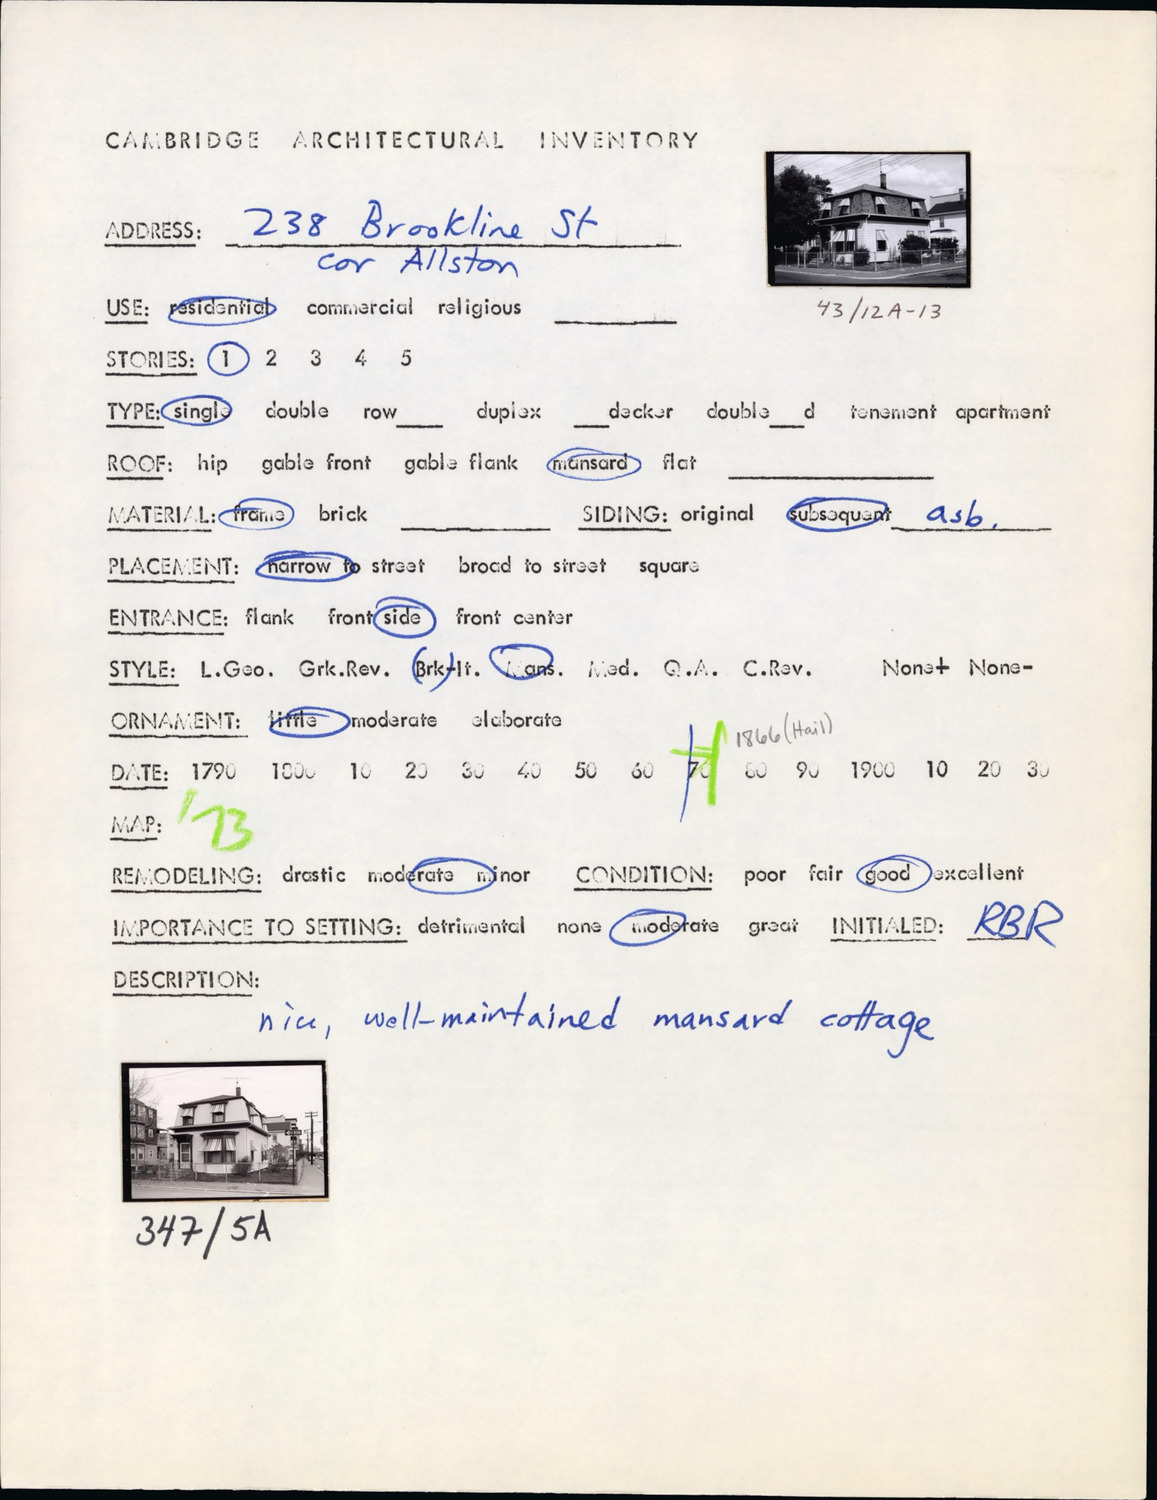 CAMBRIDGE ARCHITECTURAL INVENTORY
ADDRESS: 238 Brookline St
cor Allston
43/12A-13
USE: residential commercial religious
STORIES: 1 2 3 4 5
TYPE: single double row___ duplex ___decker double___d tenement apartment
ROOF: hip gable front gable flank mansard flat
MATERIAL: frame brick SIDING: original subsequent asb.
PLACEMENT: narrow to street broad to street square
ENTRANCE: flank front side front center
STYLE: L.Geo. Grk.Rev. (Brk)-It. Mans. Med. Q.A. C.Rev. None+ None-
ORNAMENT: little moderate elaborate
1866 (Hail)
DATE: 1790 1800 10 20 30 40 50 60 70 80 90 1900 10 20 30
MAP: '73
REMODELING: drastic moderate minor CONDITION: poor fair good excellent
IMPORTANCE TO SETTING: detrimental none moderate great INITIALED: RBR
DESCRIPTION:
nice, well-maintained mansard cottage
347/5A